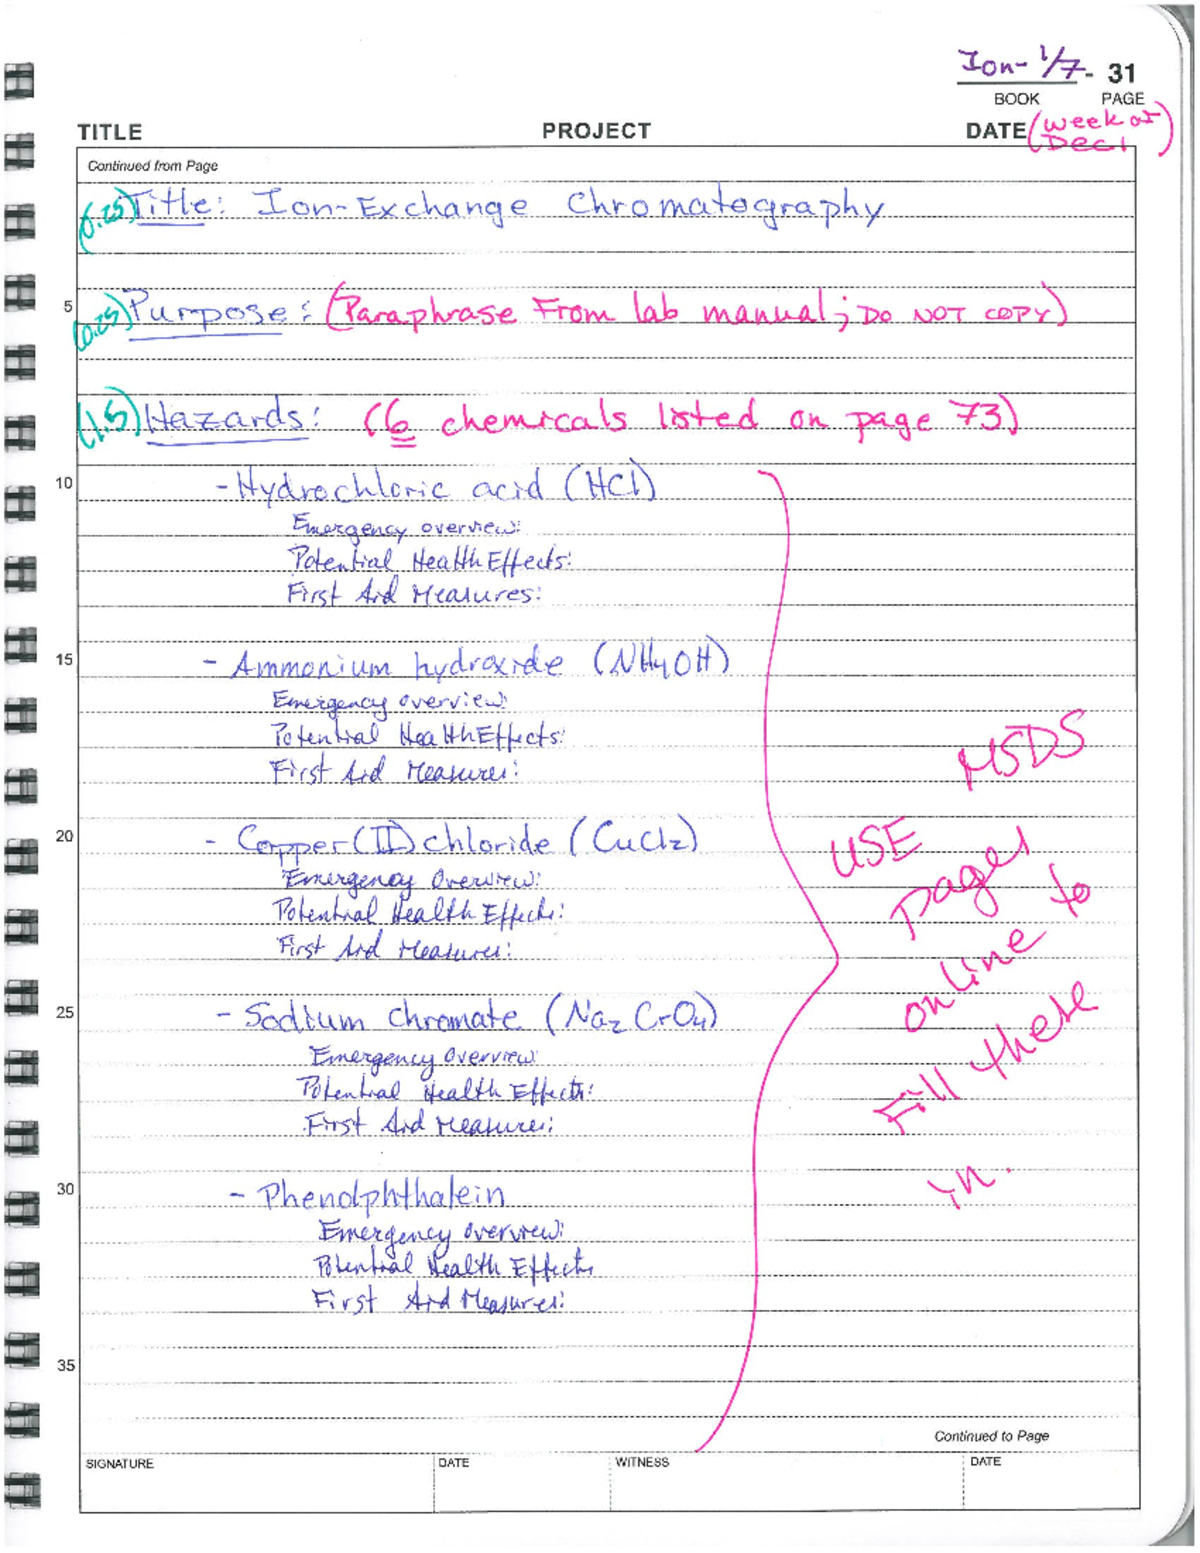 Ion- 1/7 - 31
BOOK PAGE
TITLE PROJECT DATE (week of Dec 1)
Continued from Page
(0.25) Title: Ion-Exchange Chromatography
5 (0.25) Purpose: (Paraphrase From lab manual; DO NOT COPY)
(1.5) Hazards: (6 chemicals listed on page 73)
10 - Hydrochloric acid (HCl)
Emergency overview:
Potential Health Effects:
First Aid Measures:
15 - Ammonium hydroxide (NH4OH)
Emergency overview:
Potential Health Effects:
First Aid Measures:
20 - Copper(II) chloride (CuCl2)
Emergency Overview:
Potential Health Effects:
First Aid Measures:
25 - Sodium chromate (Na2CrO4)
Emergency Overview:
Potential Health Effects:
First Aid Measures:
30 - Phenolphthalein
Emergency Overview:
Potential Health Effects
First Aid Measures:
35
USE MSDS
pages
online to
Fill these
in.
Continued to Page
SIGNATURE DATE WITNESS DATE